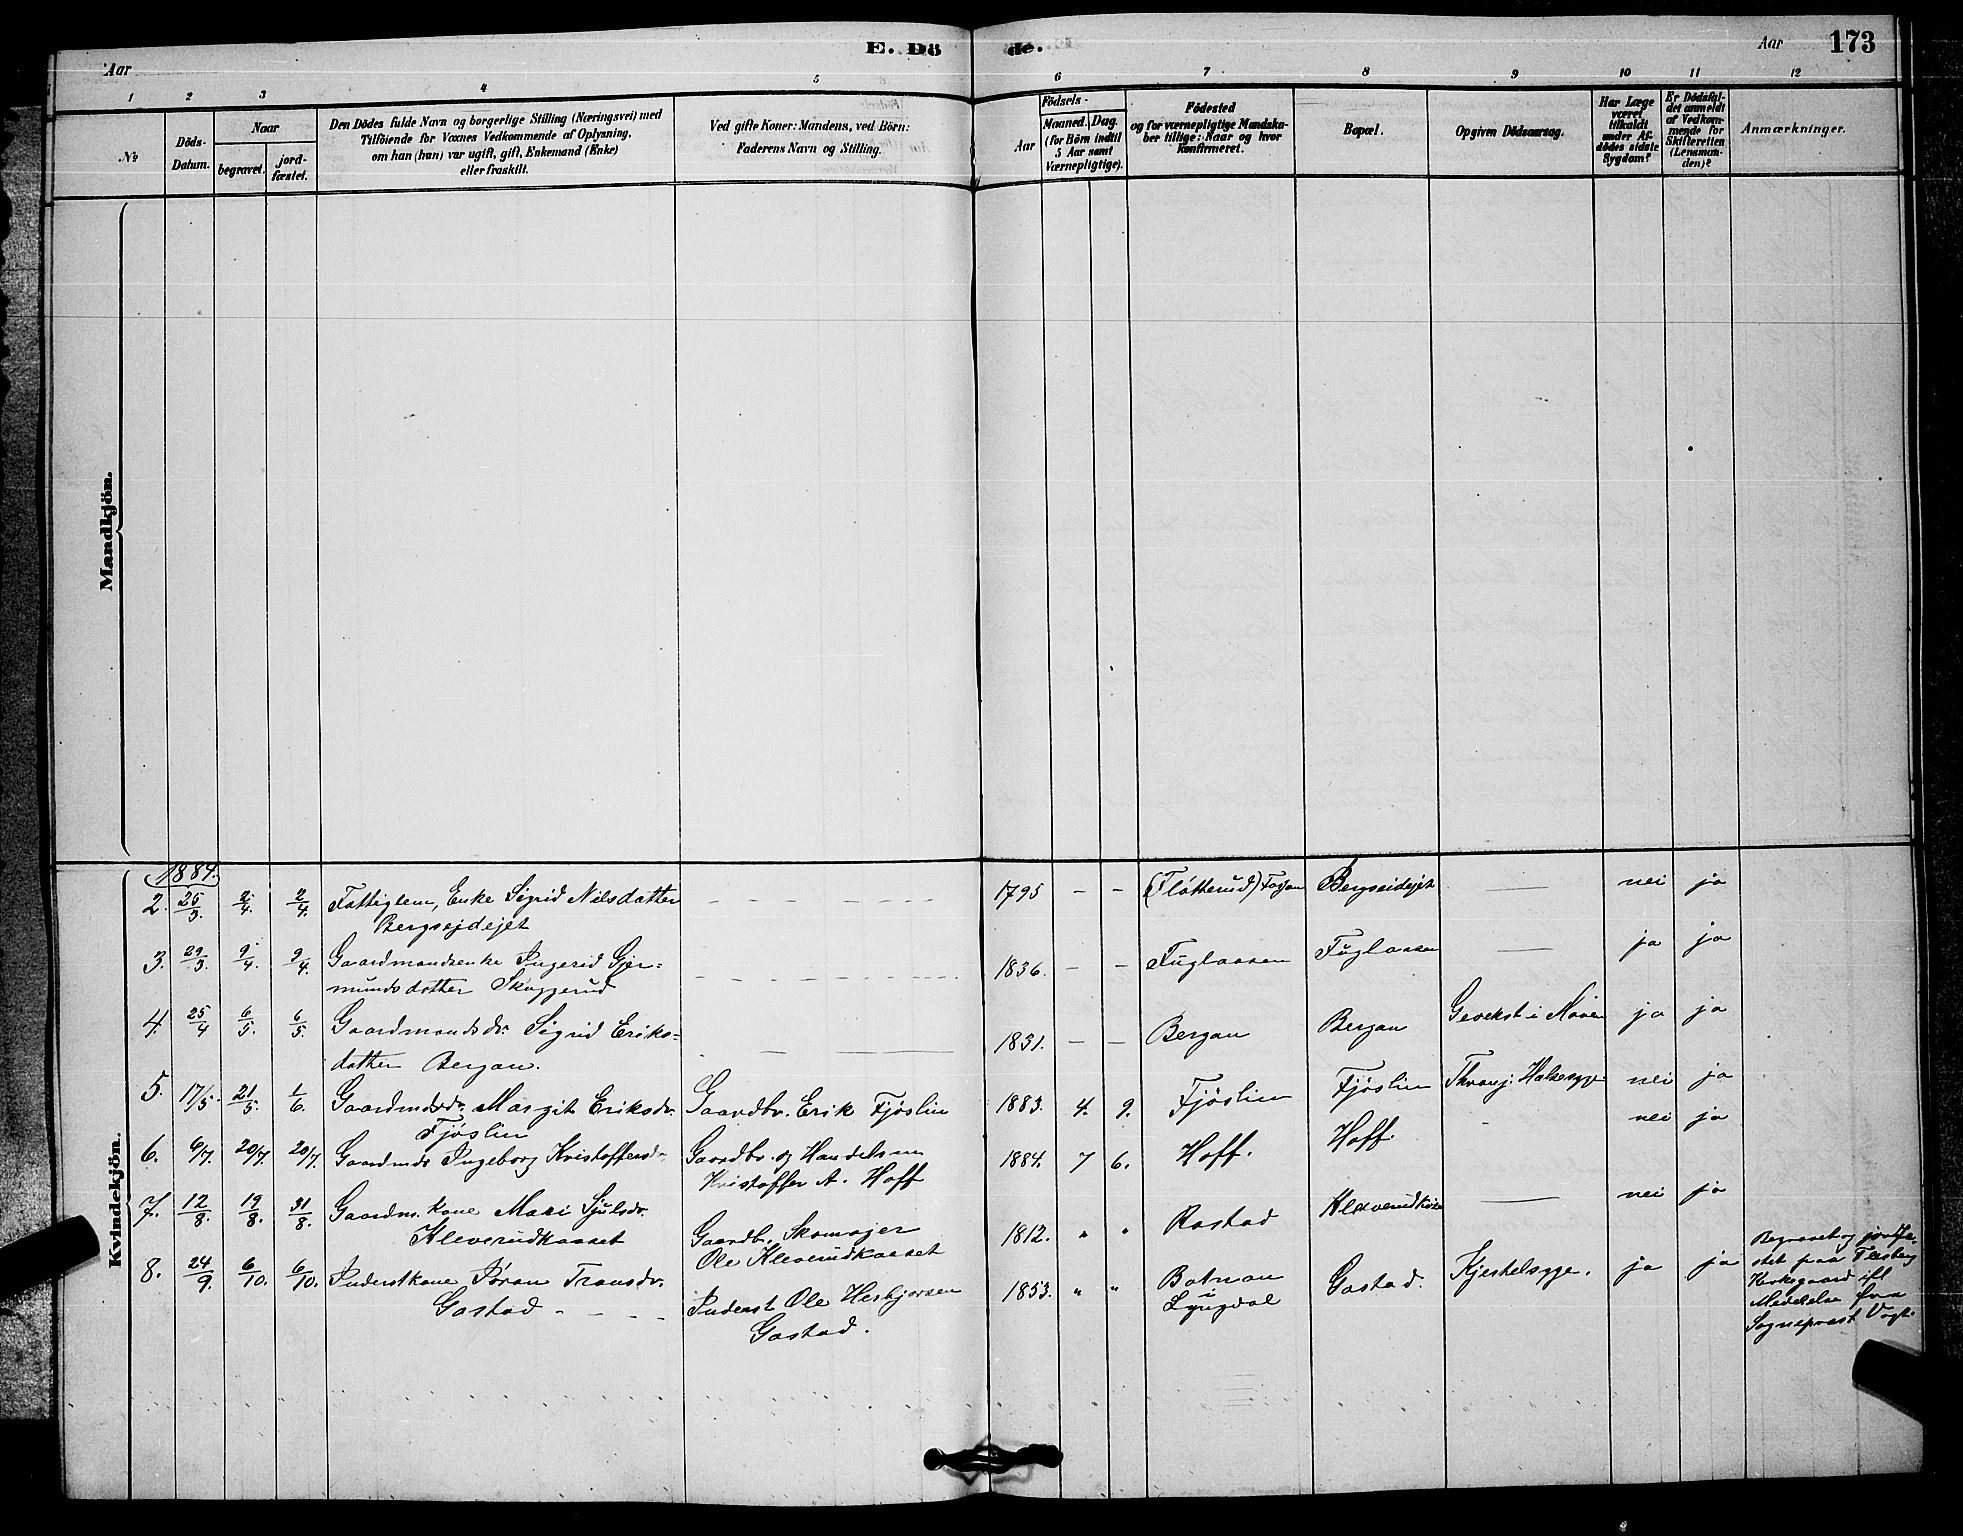 E. Dö de.
Aar
Aar 173
1 2 3 4 5 6 7 8 9 10 11 12
No
Döds-
Datum.
Naar
begravet.
jord-
fæstet.
Den Dödes fulde Navn og borgerlige Stilling (Næringsvei) med
Tilföiende for Voxnes Vedkommende af Oplysning,
om han (hun) var ugift, gift, Enkemand (Enke)
eller fraskilt.
Ved gifte Koner: Mandens, ved Börn:
Faderens Navn og Stilling.
Födsels-
Aar
Maaned. Dag.
(for Börn indtil
5 Aar samt
Værnepligtige).
Födested
og for værnepligtige Mandska-
ber tillige: Naar og hvor
Konfirmeret.
Bopæl.
Opgiven Dödsaarsag.
Har Læge
været
tilkaldt
under Af-
dødes sidste
Sygdom?
Er Dödsfal-
det anmeldt
af Vedkom-
mende for
Skifteretten
(Lensman-
den)?
Anmærkninger.
Mandkjön.
Kvindekjön.
1884.
2. 25/3. 2/4. 2/4. Fattiglem, Enke Sigrid Nilsdatter - - - - 1795 - - (Flötterud) Bergseidejet — nei ja
Bergsejdejet
3. 29/3. 9/4. 9/4. Gaardmandsenke Ingerid Gjer=
mundsdatter Skaggerud - - - - 1836. - - Fuglaasen Fuglaasen — ja ja
4. 25/4 6/5. 6/5. Gaardmandsdr. Sigrid Eriks=
datter Bergan. - — — 1831. - - Bergan Bergan Gevekst i Maven ja ja
5. 17/5. 21/5. 1/6. Gaardmdsdr. Margit Eriksdr. Gaardbr. Erik Fjöslin 1883. 4. 9. Fjöslin Fjöslin Halsesyge nei ja
Fjöslin
6. 6/7. 20/7. 20/7. Gaardmds Ingeborg Kristoffersdr. Gaardbr. og Handelsm 1884. 7 6. Hoff. Hoff. - nei ja
Kristoffer A. Hoff
7. 12/8. 19/8. 31/8. Gaardm. kone Mari Sjulsdr.
Kleverudkaaset Gaardb., Skomager 1812. " " Rastad — nei ja
Ole Kleverudkaaset
8. 24/9. 6/10. 6/10. Inderstkone Jöran Transdr.
Gastad - - - - Inderst Ole Herbjørsen 1853. " " Batnan Gastad. Kjertelsyge. ja ja
Gastad. i
Lyngdal
Begravet og jordfæ-
stet paa Flesberg
Kirkegaard ifl
Meddelelse fra
Sogneprest Vogt.